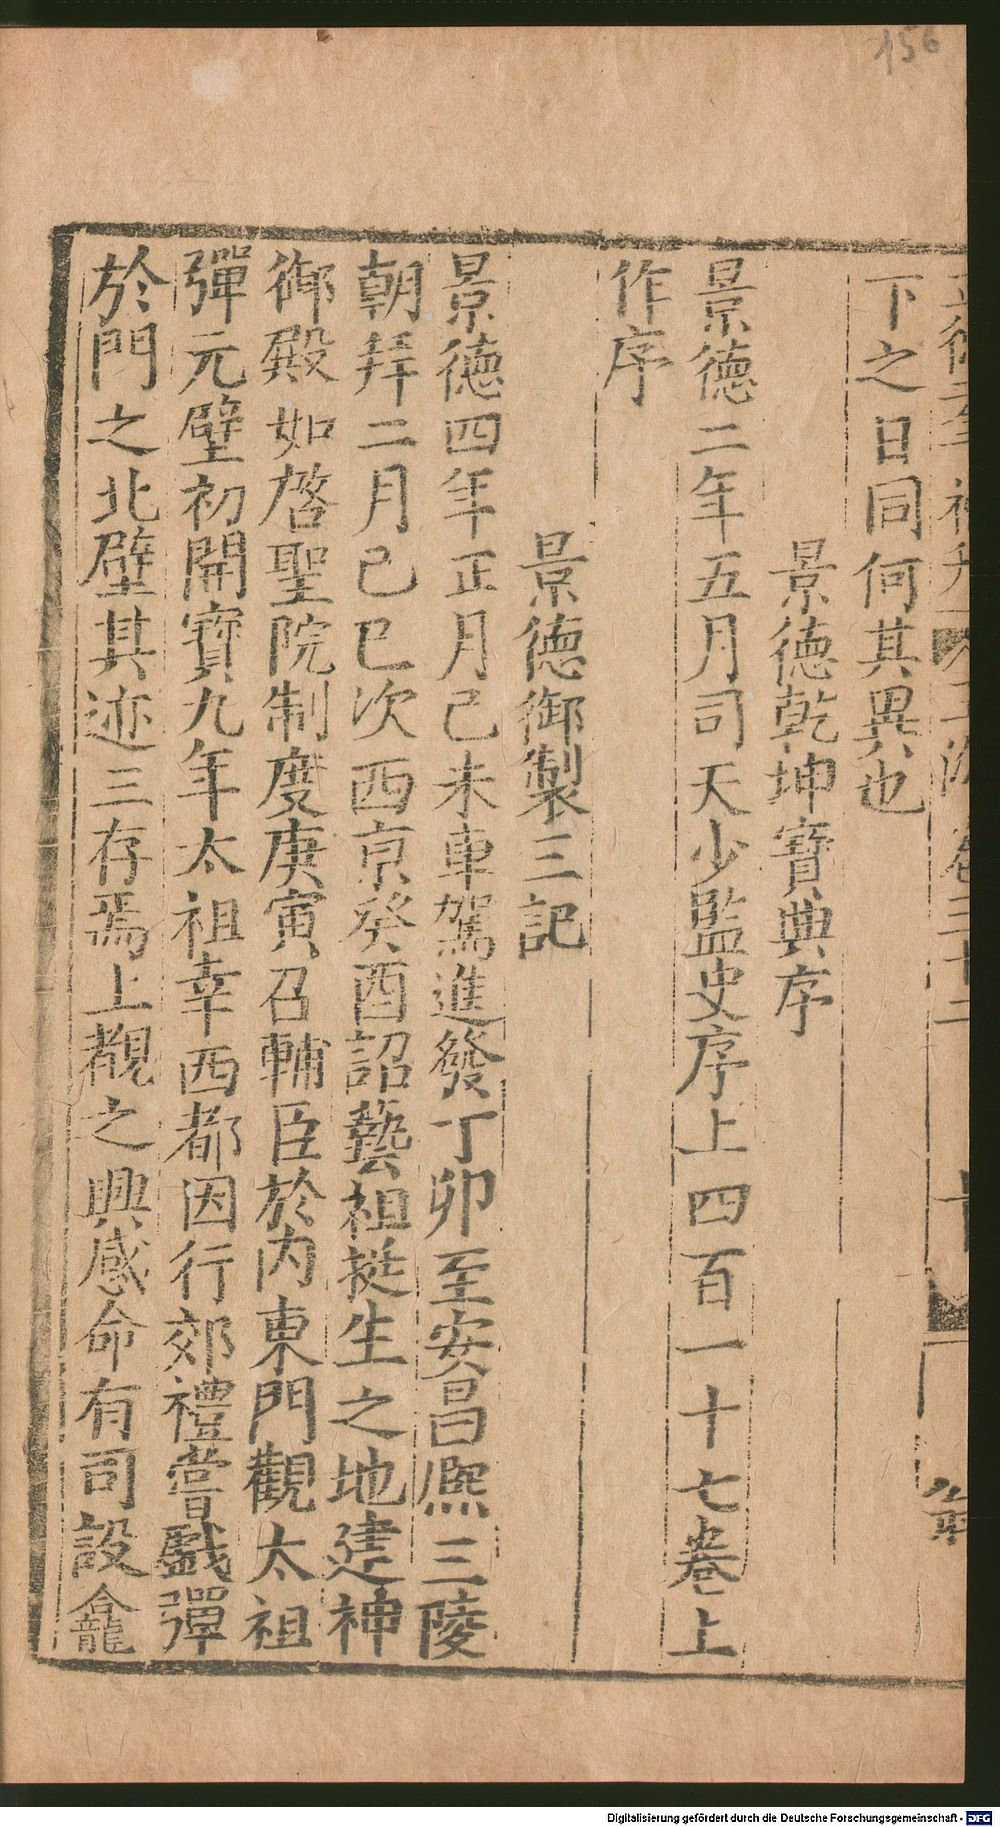 156
下之日同何其異也
景德乾坤寶典序
景德二年五月司天少監史序上四百一十七卷上
作序
景德御製三記
景德四年正月己未車駕進發丁卯至安昌熙三陵
朝拜二月己巳次西京癸酉詔藝祖挺生之地建神
御殿如啓聖院制度庚寅召輔臣於内東門觀太祖
彈元壁初開寶九年太祖幸西都因行郊禮嘗戲彈
於門之北壁其迹三存焉上覩之興感命有司設龕
Digitalisierung gefördert durch die Deutsche Forschungsgemeinschaft - DFG